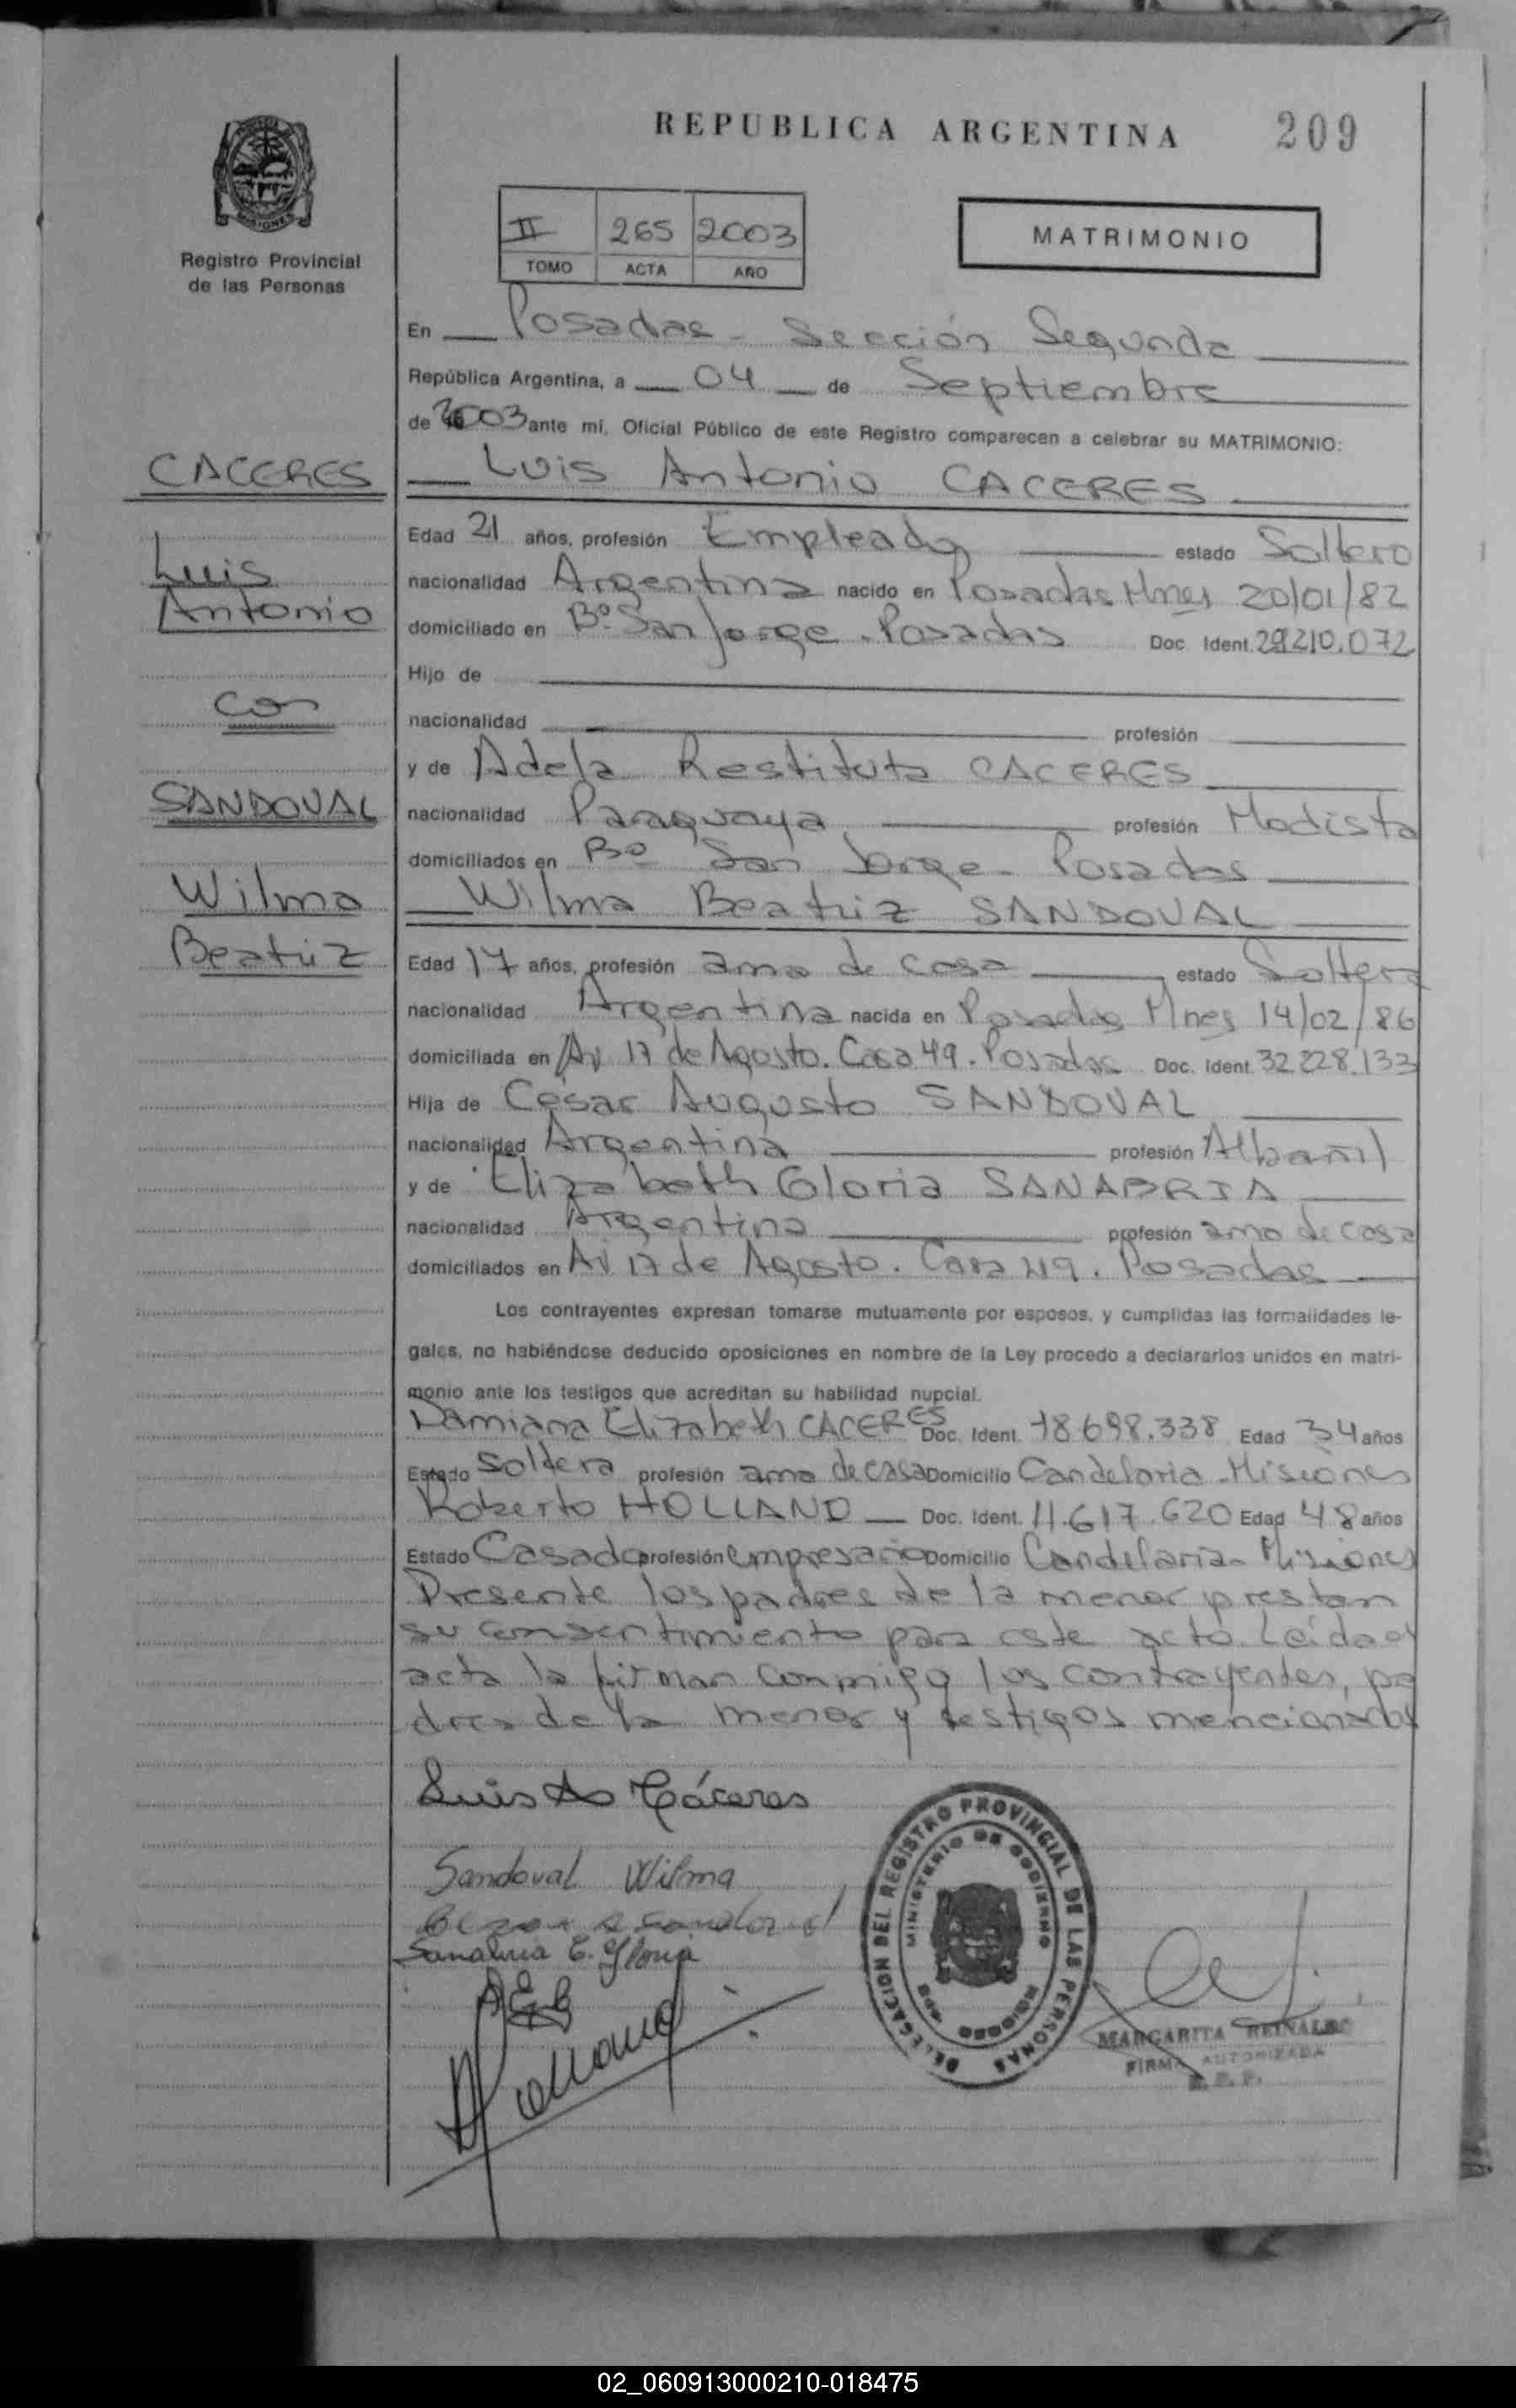 REPUBLICA ARGENTINA 209
MISIONES
Registro Provincial
de las Personas
II 265 2003
TOMO ACTA AÑO
MATRIMONIO
En Posadas - Sección Segunda
República Argentina, a 04 de Septiembre
de 2003 ante mí, Oficial Público de este Registro comparecen a celebrar su MATRIMONIO:
CACERES
Luis
Antonio
con
SANDOVAL
Wilma
Beatriz
Luis Antonio CACERES
Edad 21 años, profesión Empleado estado Soltero
nacionalidad Argentina nacido en Posadas Mnes 20/01/82
domiciliado en Bº San Jorge - Posadas Doc. Ident. 29.210.072
Hijo de
nacionalidad profesión
y de Adela Restituta CACERES
nacionalidad Paraguaya profesión Modista
domiciliados en Bº San Jorge - Posadas
Wilma Beatriz SANDOVAL
Edad 17 años, profesión ama de casa estado Soltera
nacionalidad Argentina nacida en Posadas Mnes 14/02/86
domiciliada en Av 17 de Agosto. Casa 49. Posadas Doc. Ident. 32.228.133
Hija de César Augusto SANDOVAL
nacionalidad Argentina profesión Albañil
y de Elizabeth Gloria SANABRIA
nacionalidad Argentina profesión ama de casa
domiciliados en Av 17 de Agosto. Casa 49. Posadas
Los contrayentes expresan tomarse mutuamente por esposos, y cumplidas las formalidades le-
gales, no habiéndose deducido oposiciones en nombre de la Ley procedo a declararlos unidos en matri-
monio ante los testigos que acreditan su habilidad nupcial.
Damiana Elizabeth CACERES Doc. Ident. 18.698.338 Edad 34 años
Estado Soltera profesión ama de casa Domicilio Candelaria - Misiones
Roberto HOLLAND Doc. Ident. 11.617.620 Edad 48 años
Estado Casado profesión empresario Domicilio Candelaria - Misiones
Presente los padres de la menor prestan
su consentimiento para este acto. Leída el
acta la firman conmigo los contrayentes, pa
dres de la menor y testigos mencionados
Luis Ao Cáceres
Sandoval Wilma
Sanabria E. Gloria
DELEGACION DEL REGISTRO PROVINCIAL DE LAS PERSONAS
MINISTERIO DE GOBIERNO
MARGARITA REINALDO
FIRMA AUTORIZADA
R. P. P.
02_060913000210-018475